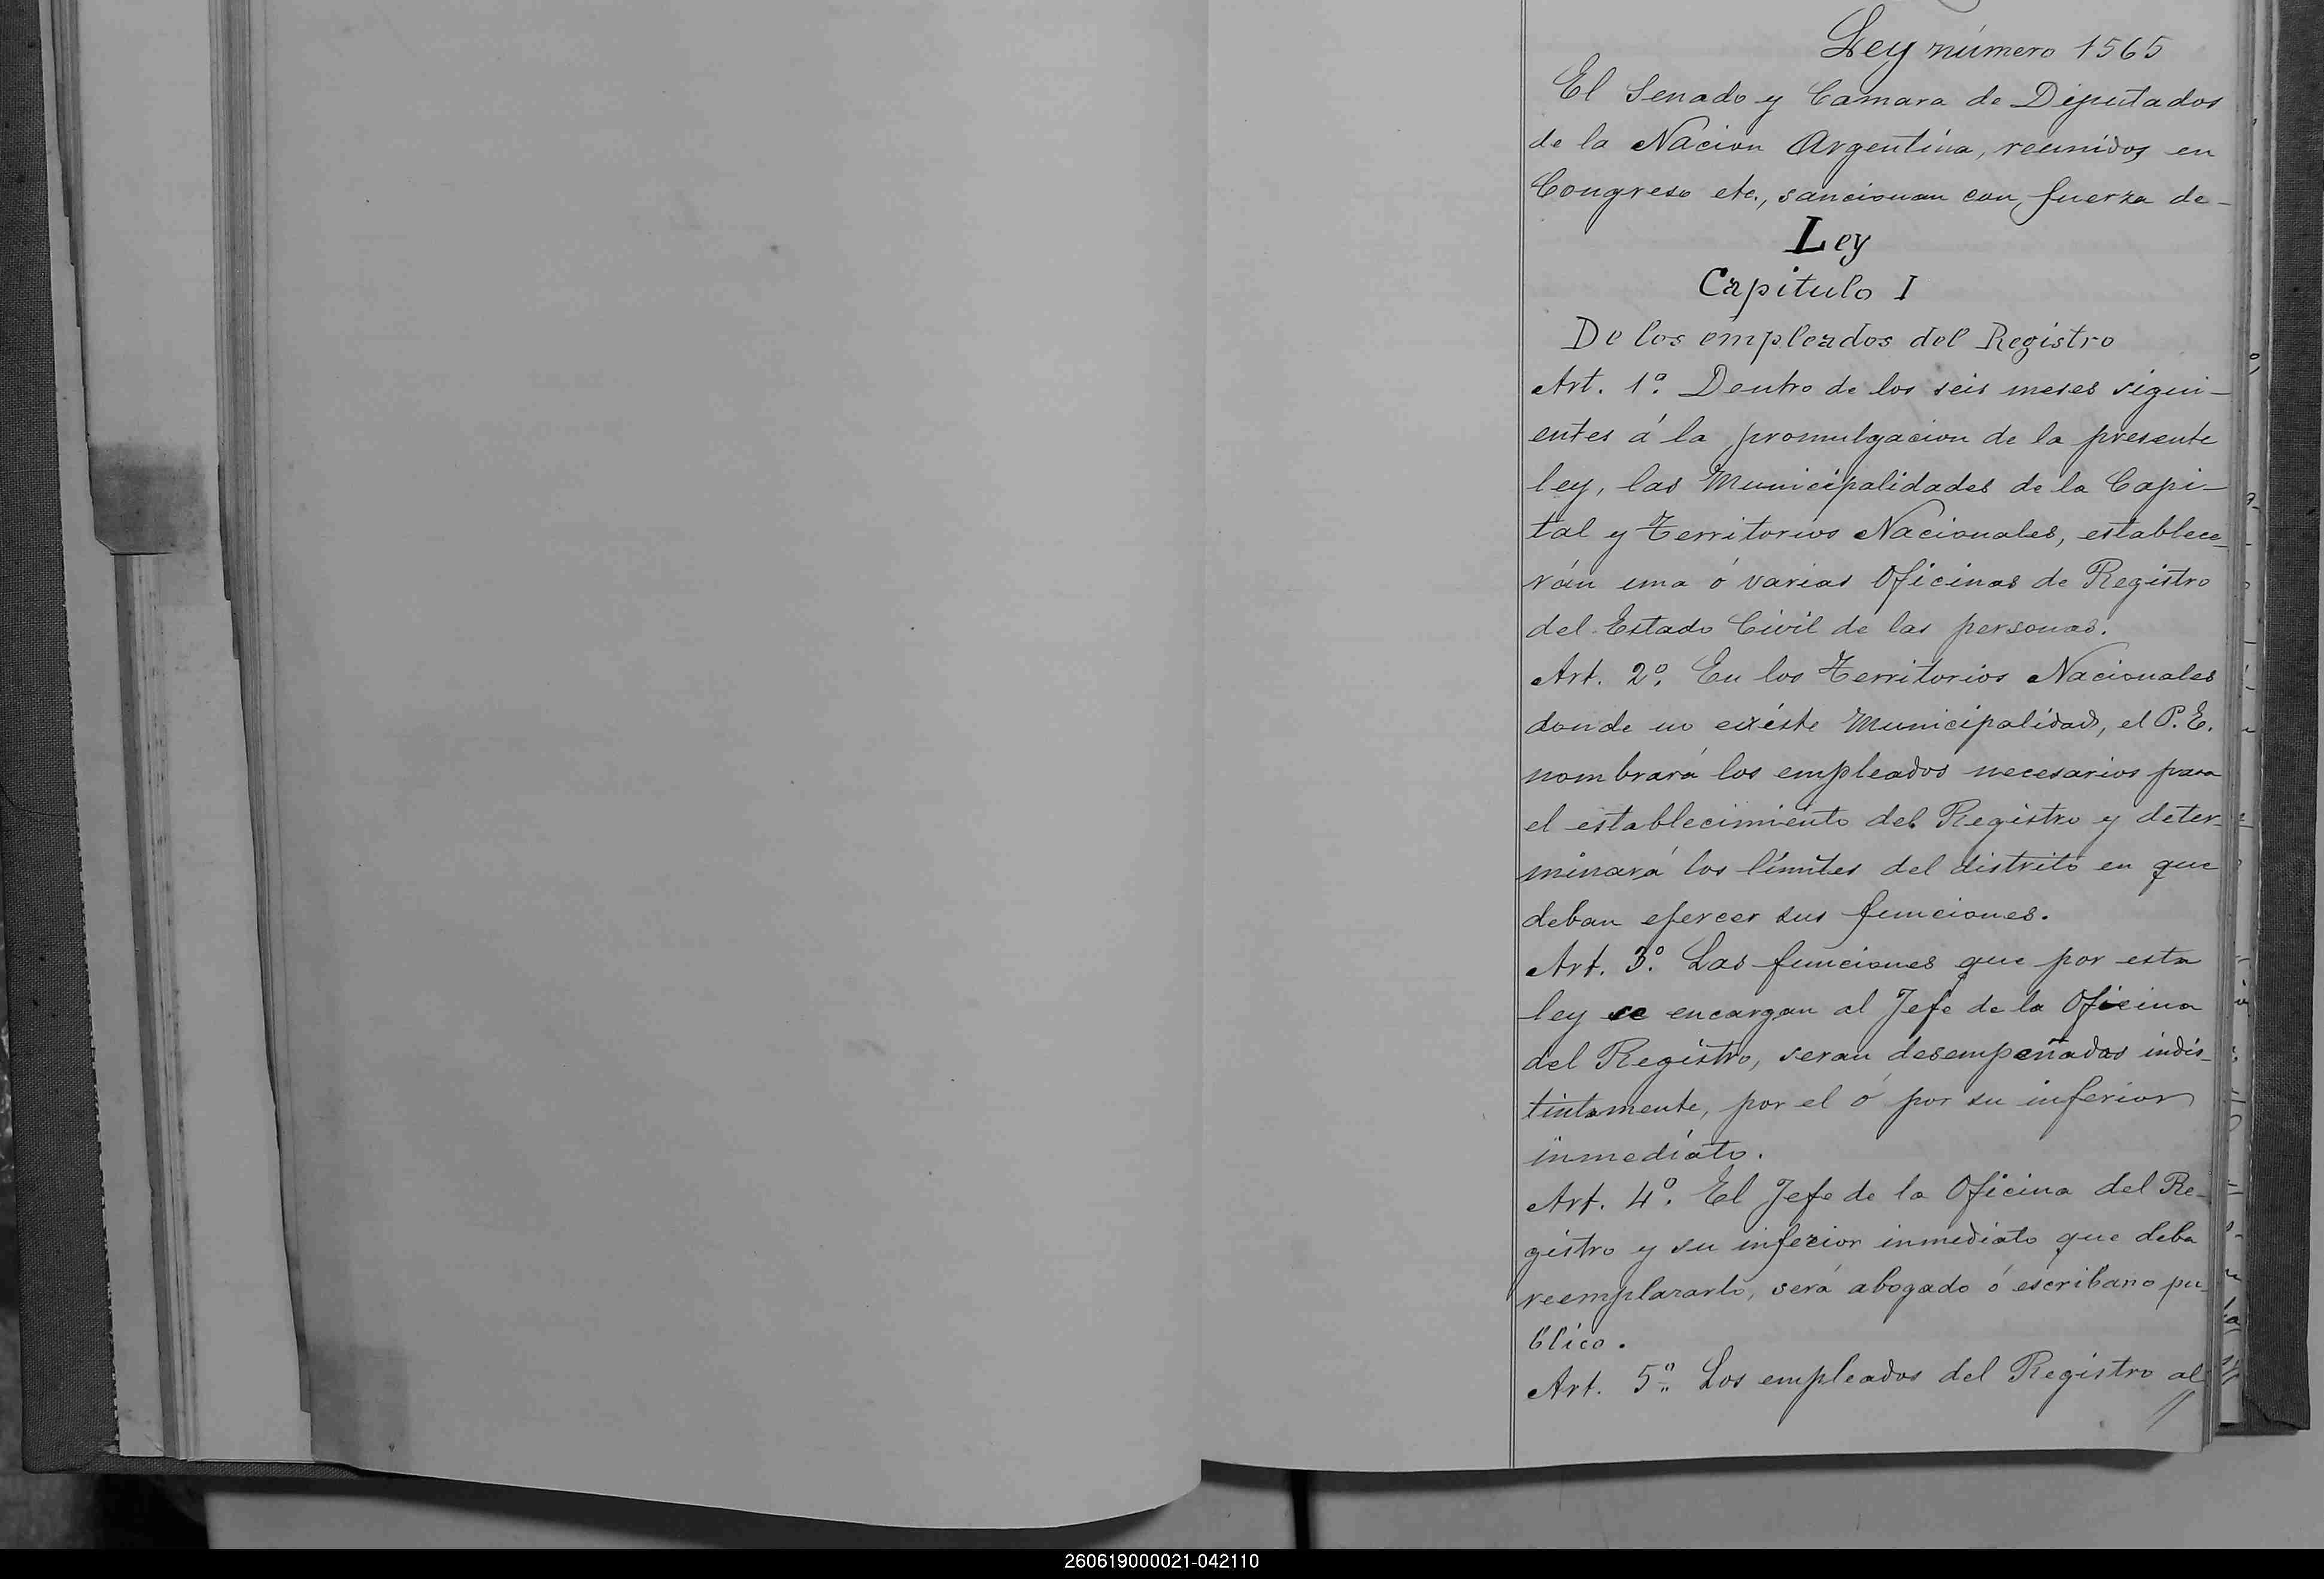 Ley número 1565
El Senado y Camara de Diputados
de la Nacion Argentina, reunidos en
Congreso etc., sancionan con fuerza de-
Ley
Capitulo I
De los empleados del Registro
Art. 1º. Dentro de los seis meses sigui-
entes á la promulgacion de la presente
ley, las Municipalidades de la Capi-
tal y Territorios Nacionales, establece-
rán una ó varias Oficinas de Registro
del Estado Civil de las personas.
Art. 2º. En los Territorios Nacionales
donde no existe Municipalidad, el P. E.
nombrará los empleados necesarios para
el establecimiento del Registro y deter-
minará los límites del distrito en que
deban ejercer sus funciones.
Art. 3º. Las funciones que por esta
ley se encargan al Jefe de la Oficina
del Registro, seran desempeñadas indis-
tintamente, por el ó por su inferior
inmediato.
Art. 4º. El Jefe de la Oficina del Re-
gistro y su inferior inmediato que deba
reemplazarlo, será abogado ó escribano pu-
blico.
Art. 5º. Los empleados del Registro al
//
260619000021-042110